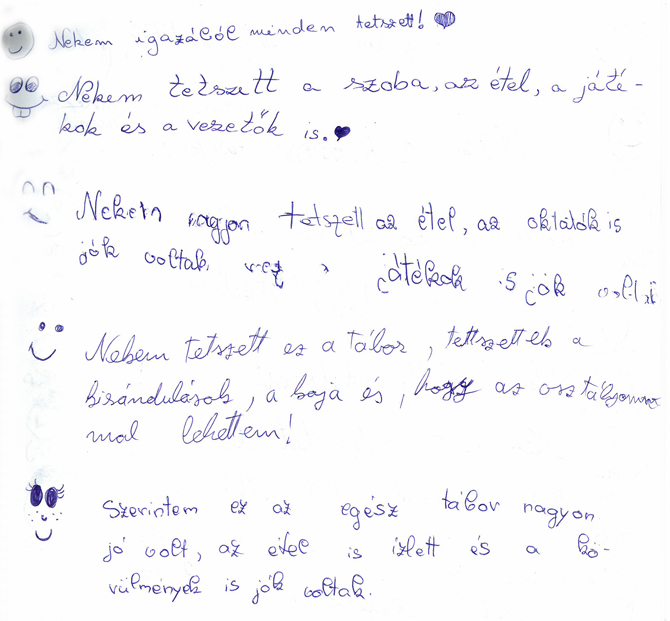 Nekem igazából minden tetszett!
Nekem tetszett a szoba, az étel, a játé-
kok és a vezetők is.
Nekem nagyon tetszett az étel, az oktatók is
jók voltak, játékok is jók
Nekem tetszett ez a tábor, tettszettek a
kirándulások, a kaja és, hogy az osztályommal
mal lehettem!
Szerintem ez az egész tábor nagyon
jó volt, az étel is ízlett és a kö-
rülmények is jók voltak.